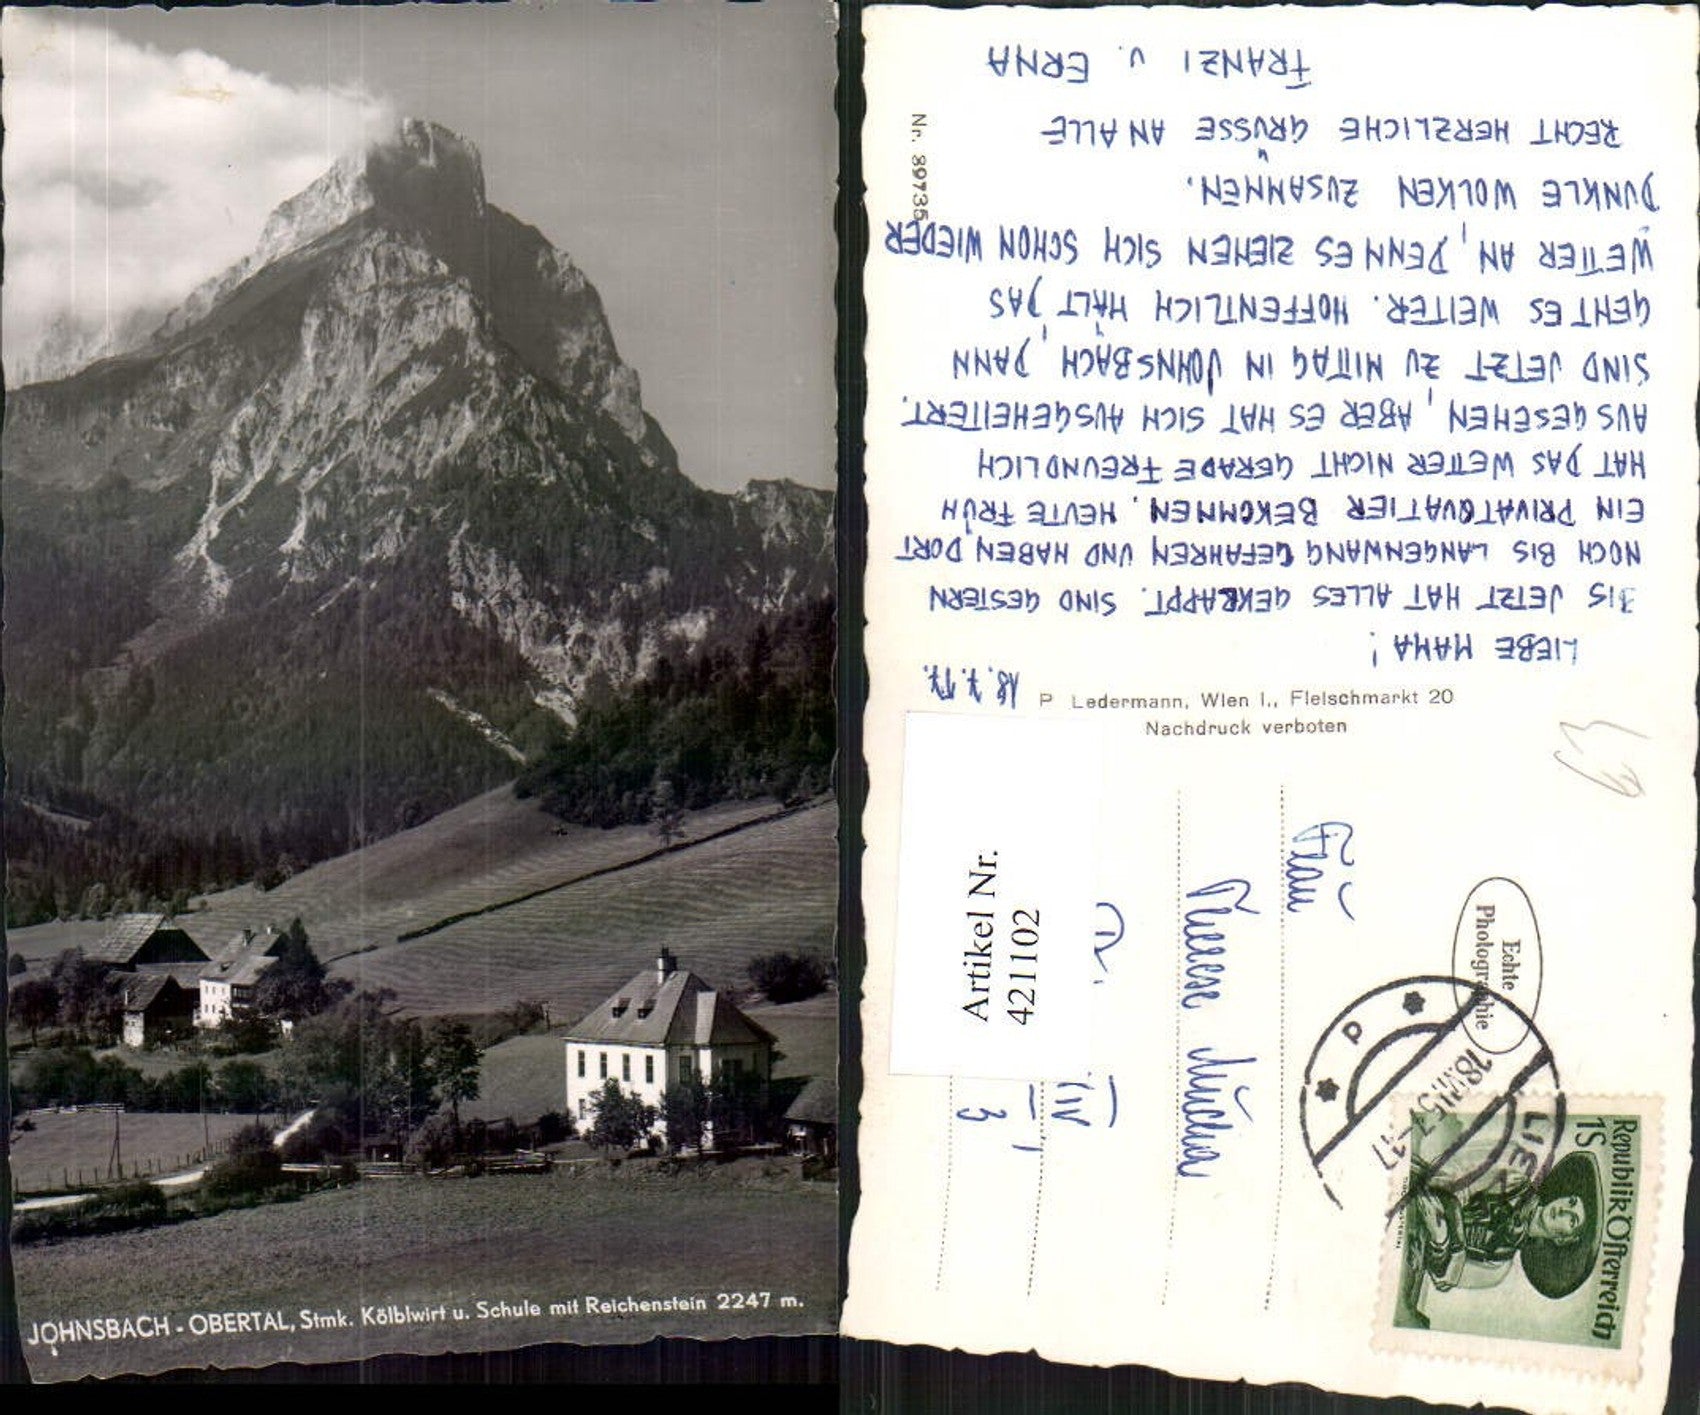 JOHNSBACH - OBERTAL, Stmk. Kölblwirt u. Schule mit Reichenstein 2247 m.
18.7.57.
LIEBE MAMA!
BIS JETZT HAT ALLES GEKLAPPT. SIND GESTERN
NOCH BIS LANGENWANG GEFAHREN UND HABEN DORT
EIN PRIVATQUATIER BEKOMMEN. HEUTE FRÜH
HAT DAS WETTER NICHT GERADE FREUNDLICH
AUSGESEHEN, ABER ES HAT SICH AUSGEHEITERT.
SIND JETZT ZU MITTAG IN JOHNSBACH, DANN
GEHT ES WEITER. HOFFENTLICH HÄLT DAS
WETTER AN, DENN ES ZIEHEN SICH SCHON WIEDER
DUNKLE WOLKEN ZUSAMMEN.
RECHT HERZLICHE GRÜSSE AN ALLE
FRANZI u. ERNA
Nr. 89735
P Ledermann, Wien I., Fleischmarkt 20
Nachdruck verboten
Echte
Photographie
Republik Österreich
1S
P
LIEZ
18.VII.57-17
Frau
Therese
W
XIV
3
Artikel Nr.
4211102